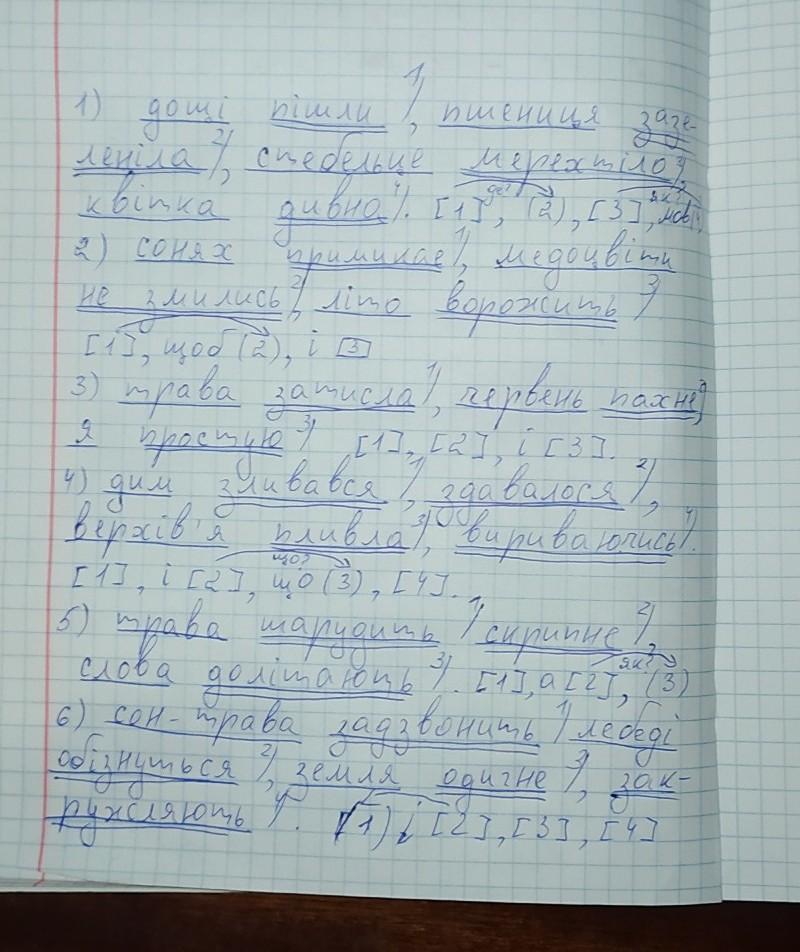 1) дощі пішли 1), пшениця заве-
леніла 2), стебельце мерехтіло 3)
квітка дивна 4). [1], (2), [3], мов
2) сонях примикає 1), медоцвіти
не змились 2), літо ворожить 3)
[1], щоб (2), і [3]
3) трава затисла 1), червень пахне 2),
я простую 3) [1], [2], і [3].
4) дим зливався 1), здавалося 2),
верхів'я пливла 3), вириваючись 4).
що?
[1], і [2], що (3), [4].
5) трава шарудить 1) скрипне 2),
як?
слова долітають 3). [1], а [2], (3)
6) сон-трава задзвонить 1) лебеді
обізнуться 2), земля одигне 3), зак-
ружляють 4). (1) і [2], [3], [4]